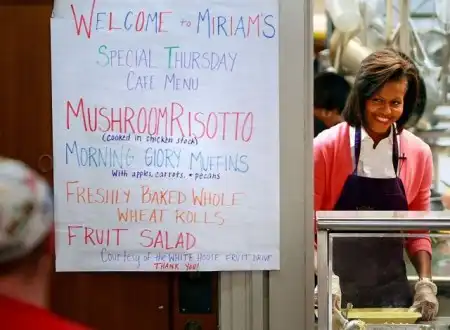 WELCOME to MIRIAM'S
SPECIAL THURSDAY
CAFE MENU
MUSHROOM RISOTTO
(cooked in chicken stock)
MORNING GLORY MUFFINS
With apples, carrots, + pecans
FRESHLY BAKED WHOLE
WHEAT ROLLS
FRUIT SALAD
Courtesy of the WHITE HOUSE FRUIT DRIVE
THANK YOU!